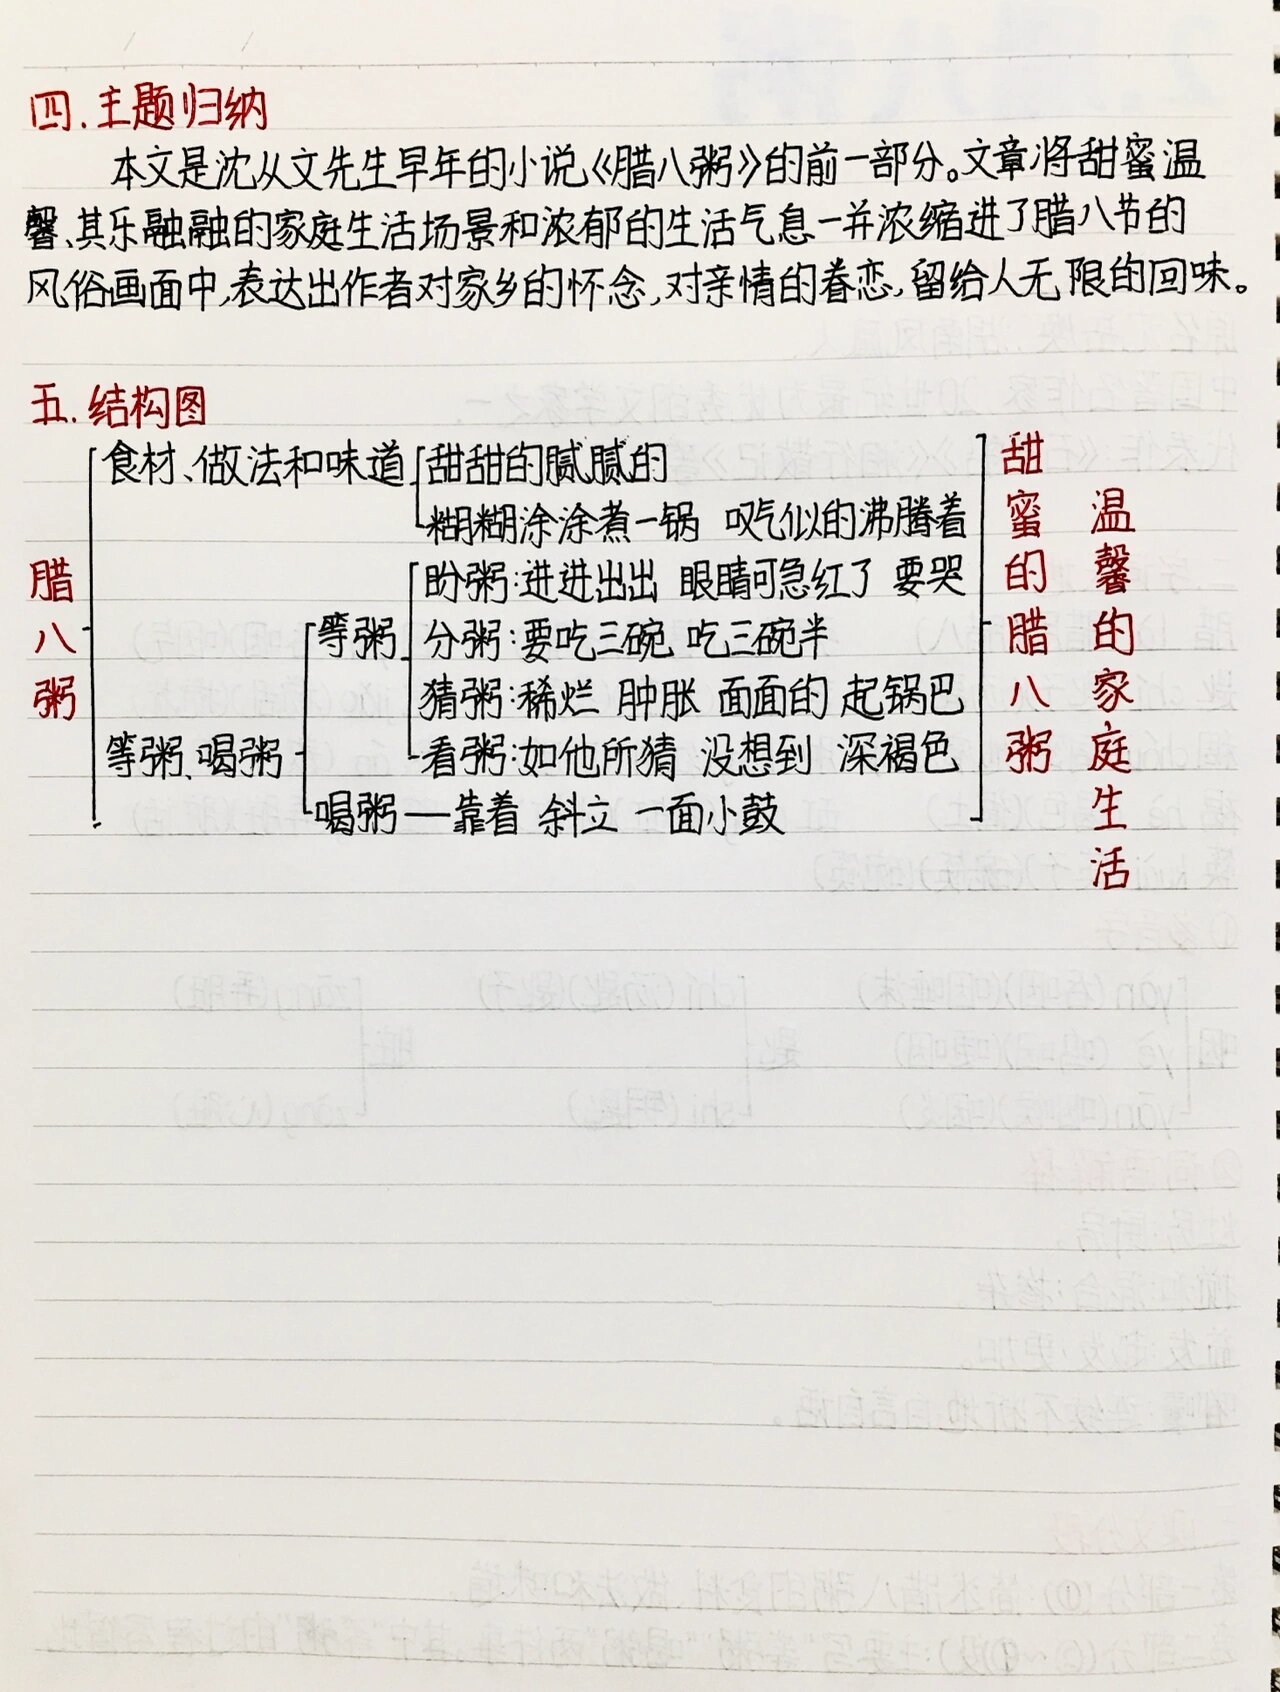 四.主题归纳
本文是沈从文先生早年的小说《腊八粥》的前一部分。文章将甜蜜温
馨、其乐融融的家庭生活场景和浓郁的生活气息一并浓缩进了腊八节的
风俗画面中,表达出作者对家乡的怀念,对亲情的眷恋,留给人无限的回味。
五.结构图
腊八粥
食材、做法和味道
甜甜的腻腻的
糊糊涂涂煮一锅 叹气似的沸腾着
等粥、喝粥
等粥
盼粥:进进出出 眼睛可急红了 要哭
分粥:要吃三碗 吃三碗半
猜粥:稀烂 肿胀 面面的 起锅巴
看粥:如他所猜 没想到 深褐色
喝粥—靠着 斜立 一面小鼓
甜蜜的腊八粥
温馨的家庭生活